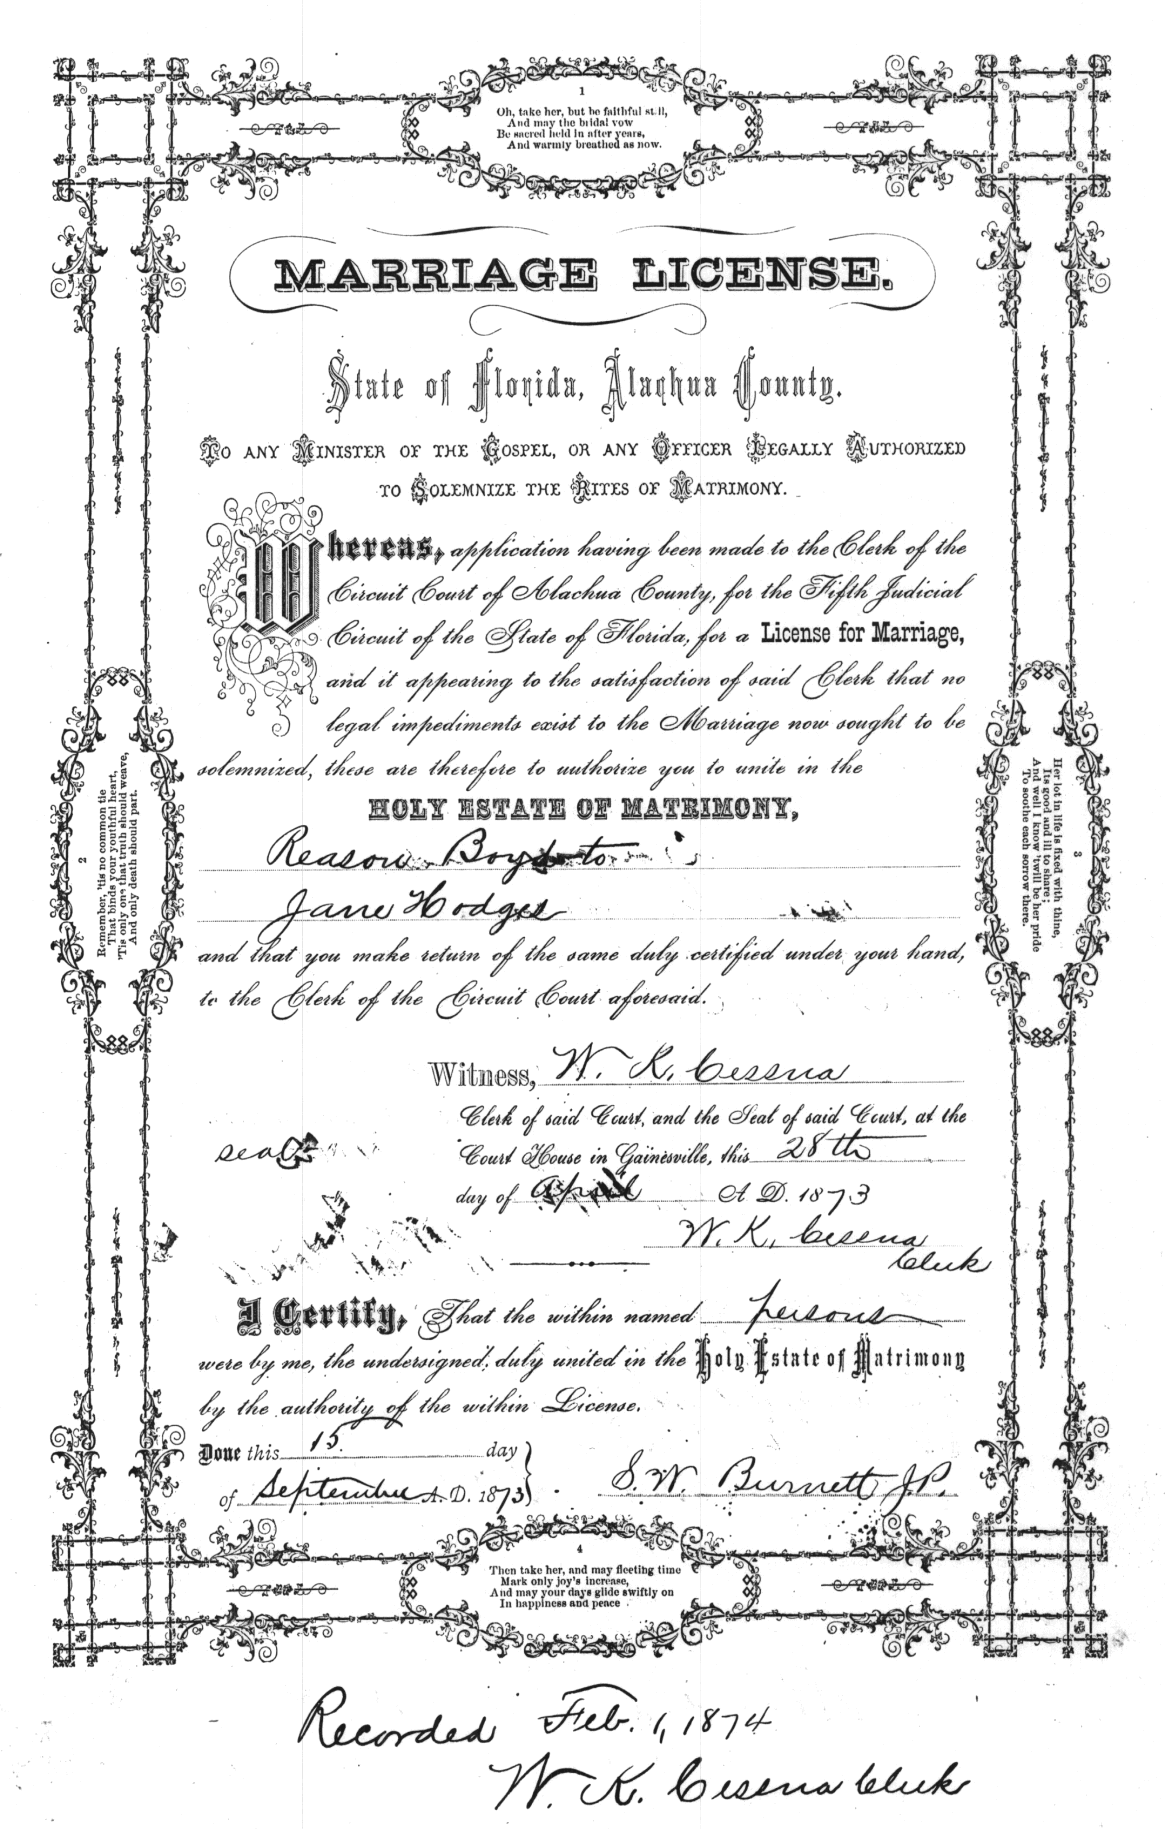 1
Oh, take her, but be faithful still,
And may the bridal vow
Be sacred held in after years,
And warmly breathed as now.
MARRIAGE LICENSE.
State of Florida, Alachua County.
TO ANY MINISTER OF THE GOSPEL, OR ANY OFFICER LEGALLY AUTHORIZED
TO SOLEMNIZE THE RITES OF MATRIMONY.
Whereas, application having been made to the Clerk of the
Circuit Court of Alachua County, for the Fifth Judicial
Circuit of the State of Florida, for a License for Marriage,
and it appearing to the satisfaction of said Clerk that no
legal impediments exist to the Marriage now sought to be
solemnized, these are therefore to authorize you to unite in the
HOLY ESTATE OF MATRIMONY,
Reason Boyd to
Jane Hodges
and that you make return of the same duly certified under your hand,
to the Clerk of the Circuit Court aforesaid.
Witness, W. K. Cessna
Clerk of said Court, and the Seal of said Court, at the
seal
Court House in Gainesville, this 28th
day of April A. D. 1873
W. K. Cessna
Clerk
I Certify, That the within named persons
were by me, the undersigned, duly united in the Holy Estate of Matrimony
by the authority of the within License.
Done this 15. day
of September A. D. 1873
S. W. Burnett J.P.
2
Remember, 'tis no common tie
That binds your youthful heart,
'Tis only one that truth should weave,
And only death should part.
3
Her lot in life is fixed with thine,
Its good and ill to share;
And well I know 'twill be her pride
To soothe each sorrow there.
4
Then take her, and may fleeting time
Mark only joy's increase,
And may your days glide swiftly on
In happiness and peace
Recorded Feb. 1, 1874
W. K. Cessna Clerk